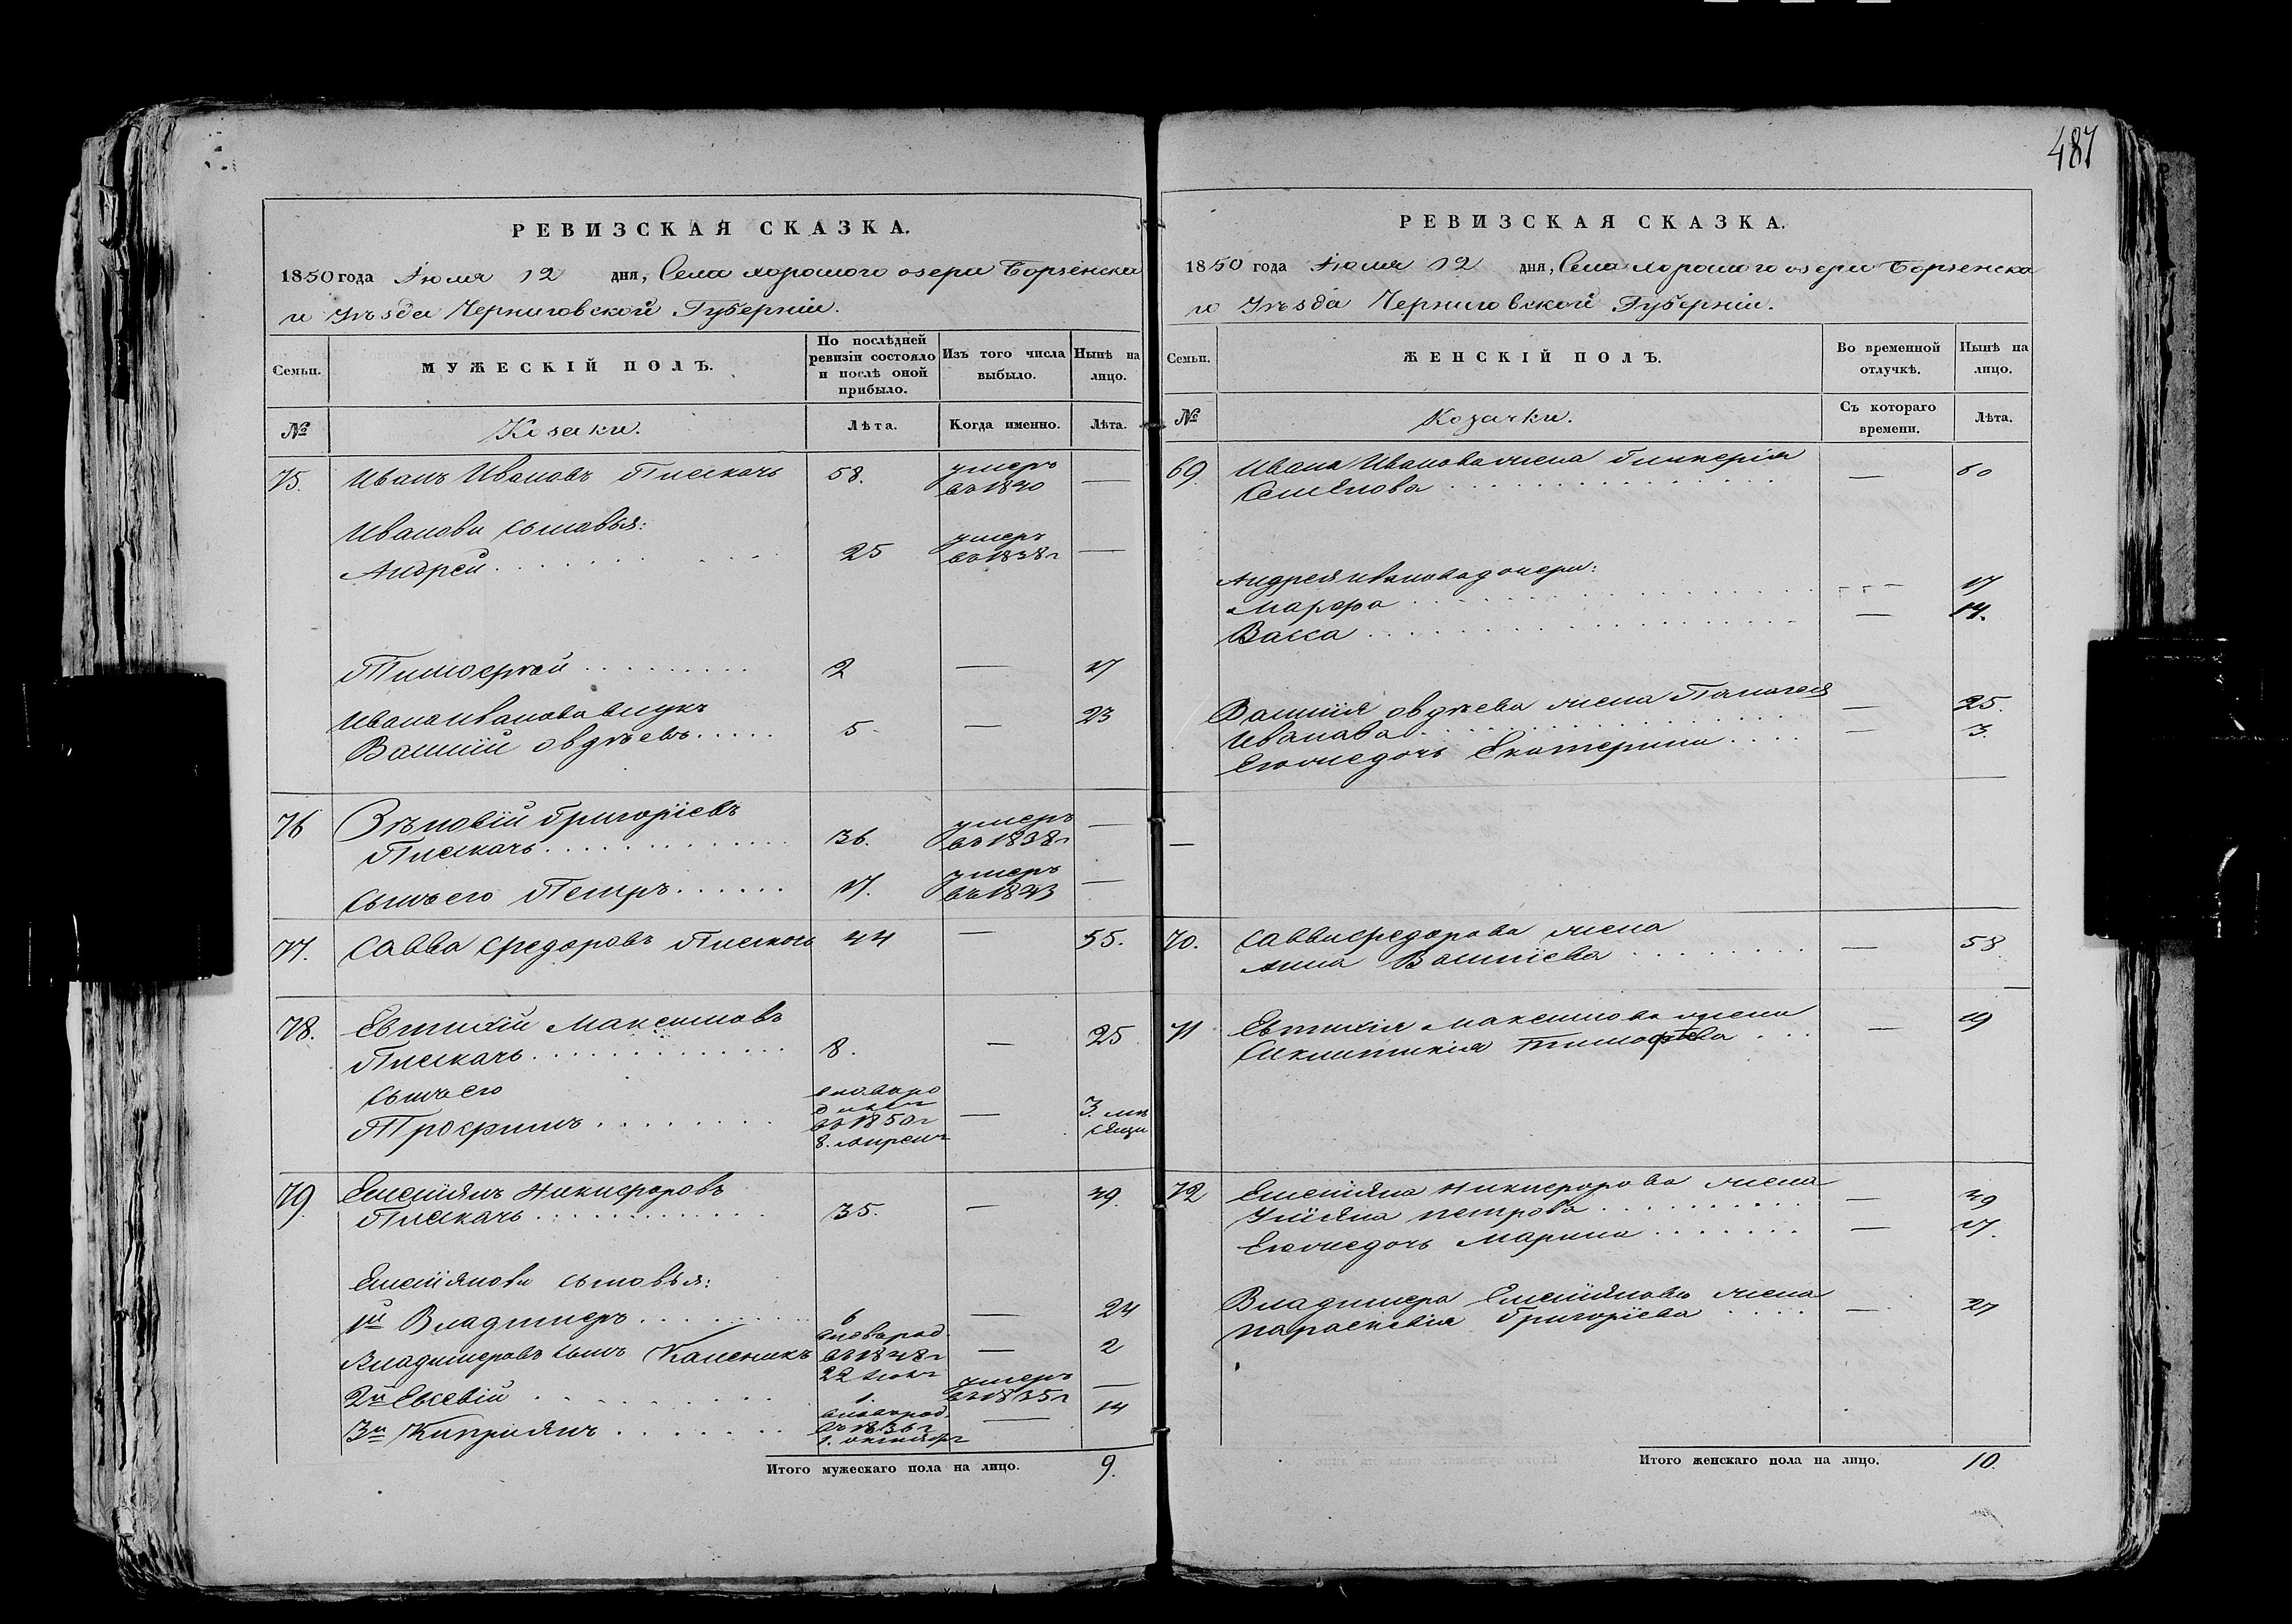 487
РЕВИЗСКАЯ СКАЗКА.
1850 года Іюля 12 дня, Села Хорошого озера Борзенска
го Уѣзда Черниговской Губерніи.
Семьи.
МУЖЕСКІЙ ПОЛЪ.
По послѣдней ревизіи состояло и послѣ оной прибыло.
Изъ того числа выбыло.
Нынѣ на лицо.
№
Козаки.
Лѣта.
Когда именно.
Лѣта.
75. Иванъ Ивановъ Пискачь 58. умеръ въ 1840 —
Иванови сыновья:
Андрей 25 умеръ въ 1838г —
Тимофѣй 2 — 17
Ивана Иванова внукъ
Василій Овдѣевъ 5. — 23
76 Зѣновій Григоріевъ
Пискачь 36. умеръ въ 1838г —
сынъ его Петръ 17. умеръ въ 1843 —
77. Савва Федоровъ Пискачь 44 — 55.
78. Евтихій Максимовъ
Пискачь 8. — 25
сынъ его
Трофимъ новоро въ 1850г 8. апреля — 3. мѣ сяца
79. Емеліянъ Никифоровъ
Пискачь 35. — 49.
Емеліянови сыновья:
1й Владимеръ 6 — 24
Владимеровъ сынъ Каленикъ новород. въ 1848г 22 — 2
2й Евсевій 1. умеръ въ 1835г —
3й Кипріянъ новород. въ 1836г 1. октября — 14
Итого мужескаго пола на лицо. 9.
РЕВИЗСКАЯ СКАЗКА.
1850 года Іюля 12 дня, Села Хорошого озера Борзенска
го Уѣзда Черниговской Губерніи.
Семьи.
ЖЕНСКІЙ ПОЛЪ.
Во временной отлучкѣ.
Нынѣ на лицо.
№
Козачки.
Съ котораго времени.
Лѣта.
69. Ивана Иванова жена Гликерія
Семенова — 60
Андрея Иванова дочери:
Марфа — 17
Васса — 14.
Василія Овдѣева жена Пелагея
Иванова — 25.
Его же дочь Екатерина — 3.
—
70. Саввы Федорова жена
Анна Василіева — 58
71 Евтихія Максимова жена
Сиклитикія Тимофѣева — 19
72 Емеліяна Никифорова жена
Уліяна Петрова — 49
Его же дочь Марина — 17.
Владимера Емеліянова жена
Параскевія Григоріева — 27
Итого женскаго пола на лицо. 10.